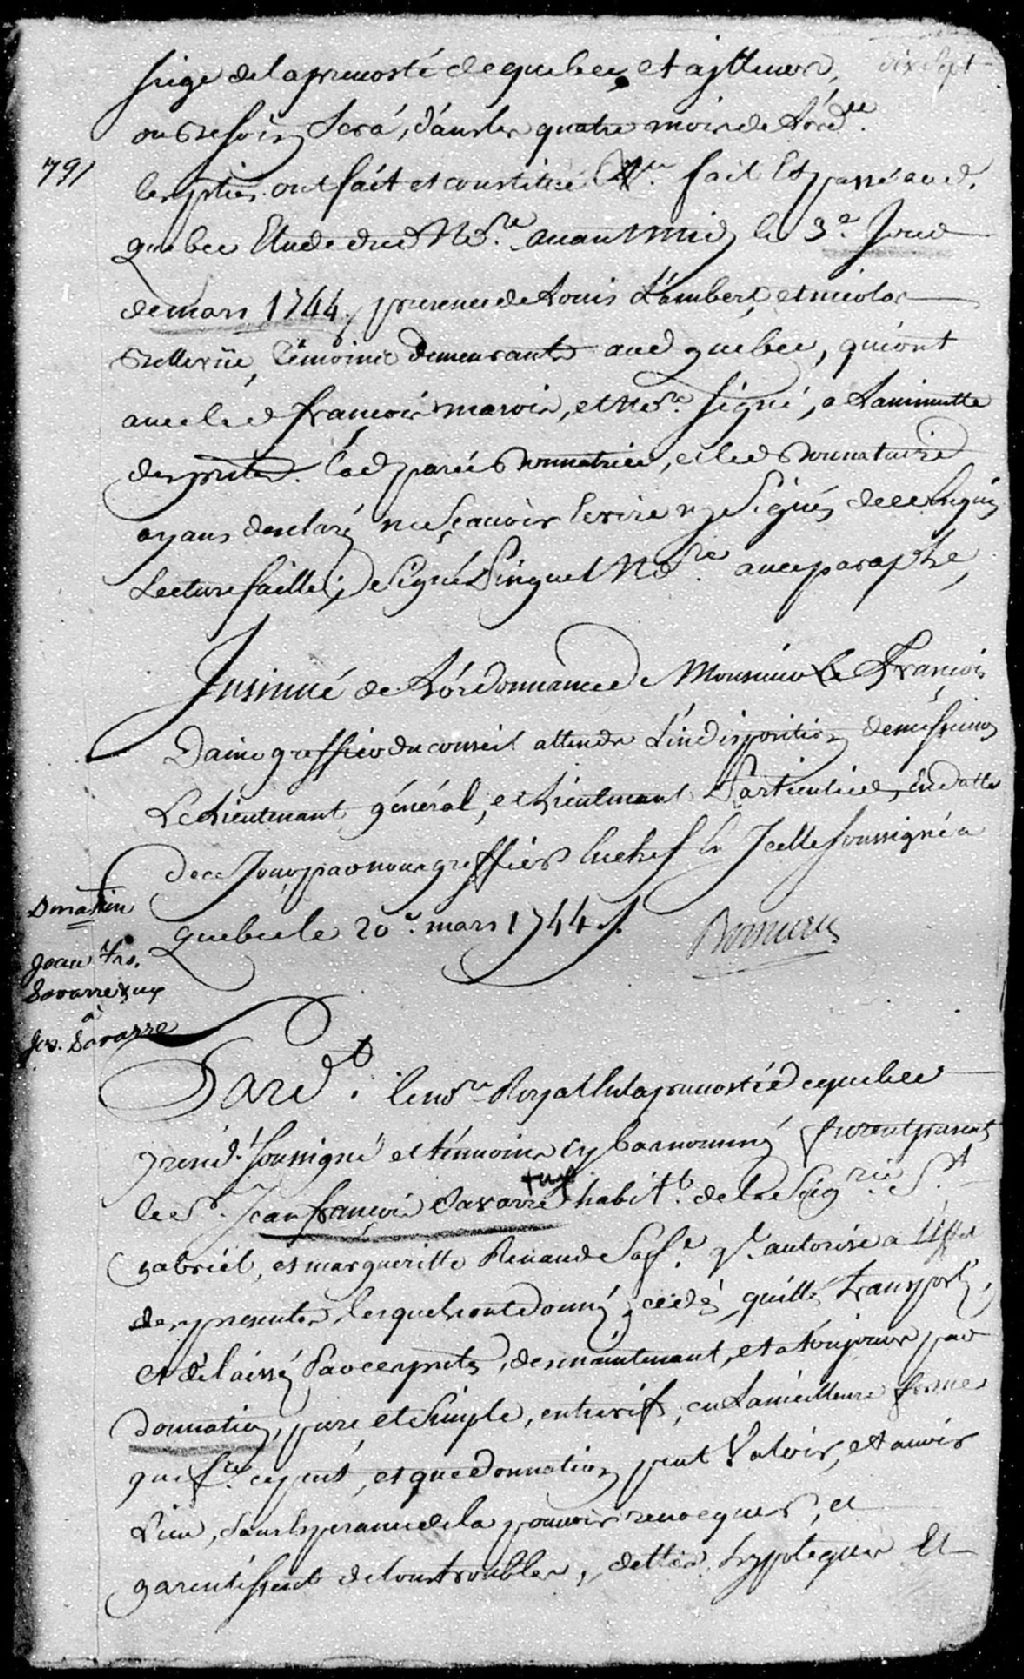 siege de la prevosté de quebec, et ailleurs, dix sept
ou besoin sera, dans les quatre mois de Lord.ce
791
les p'ties ont fait et constitué fait Et passé aud.
quebec Etude dud No.re avant midi le 3e Jour
de mars 1744, presence de Louis Lambert, et nicolas
Bellevüe, témoins demeurants aud quebec, qui ont
avec led françois marois, et no.re signé, a La minutte
des p'ntes. Lad parti Donnatrice, et led Donnataire
ayans declaré ne sçavoir Ecrire ny signer de ce Enquis
Lecture faitte; signé Pinguet No.re avec paraphe,
Insinué de L'ordonnance de Monsieur Le François
Daine greffier du conseil attendu L'indisposition de messieurs
Le Lieutenant général, et Lieutenant Particulier, En datte
de ce Jour par nous greffier En chef En Icelle soussigné a
quebec le 20e mars 1744 ./.
Boisseau
Donation
Jean Frs.
Savarre & ux
à
Jos. Savarre
Pard.t le no.re Royal En la prevosté de quebec
y resid.t soussigné et témoins cy bas nommés furent presents
le Sr. Jean françois Savarre habit.t de la Seig.rie St
Gabriël, et margueritte Renaud sa fe. de lui autorisée a L'effet
des presentes, lesquels ont donné, cédé, quitté, transporté,
et délaissé Par ces p'ntes, des maintenant, et a toujours par
donnation, pure et simple, entrevif, en La meilleure forme
que f.re ce peut, et que donnation peut Valoir, et avoir
Lieu, sans Esperance de la pouvoir revoquer, et
garentissent de tous troubles, dettes, hypteques Et